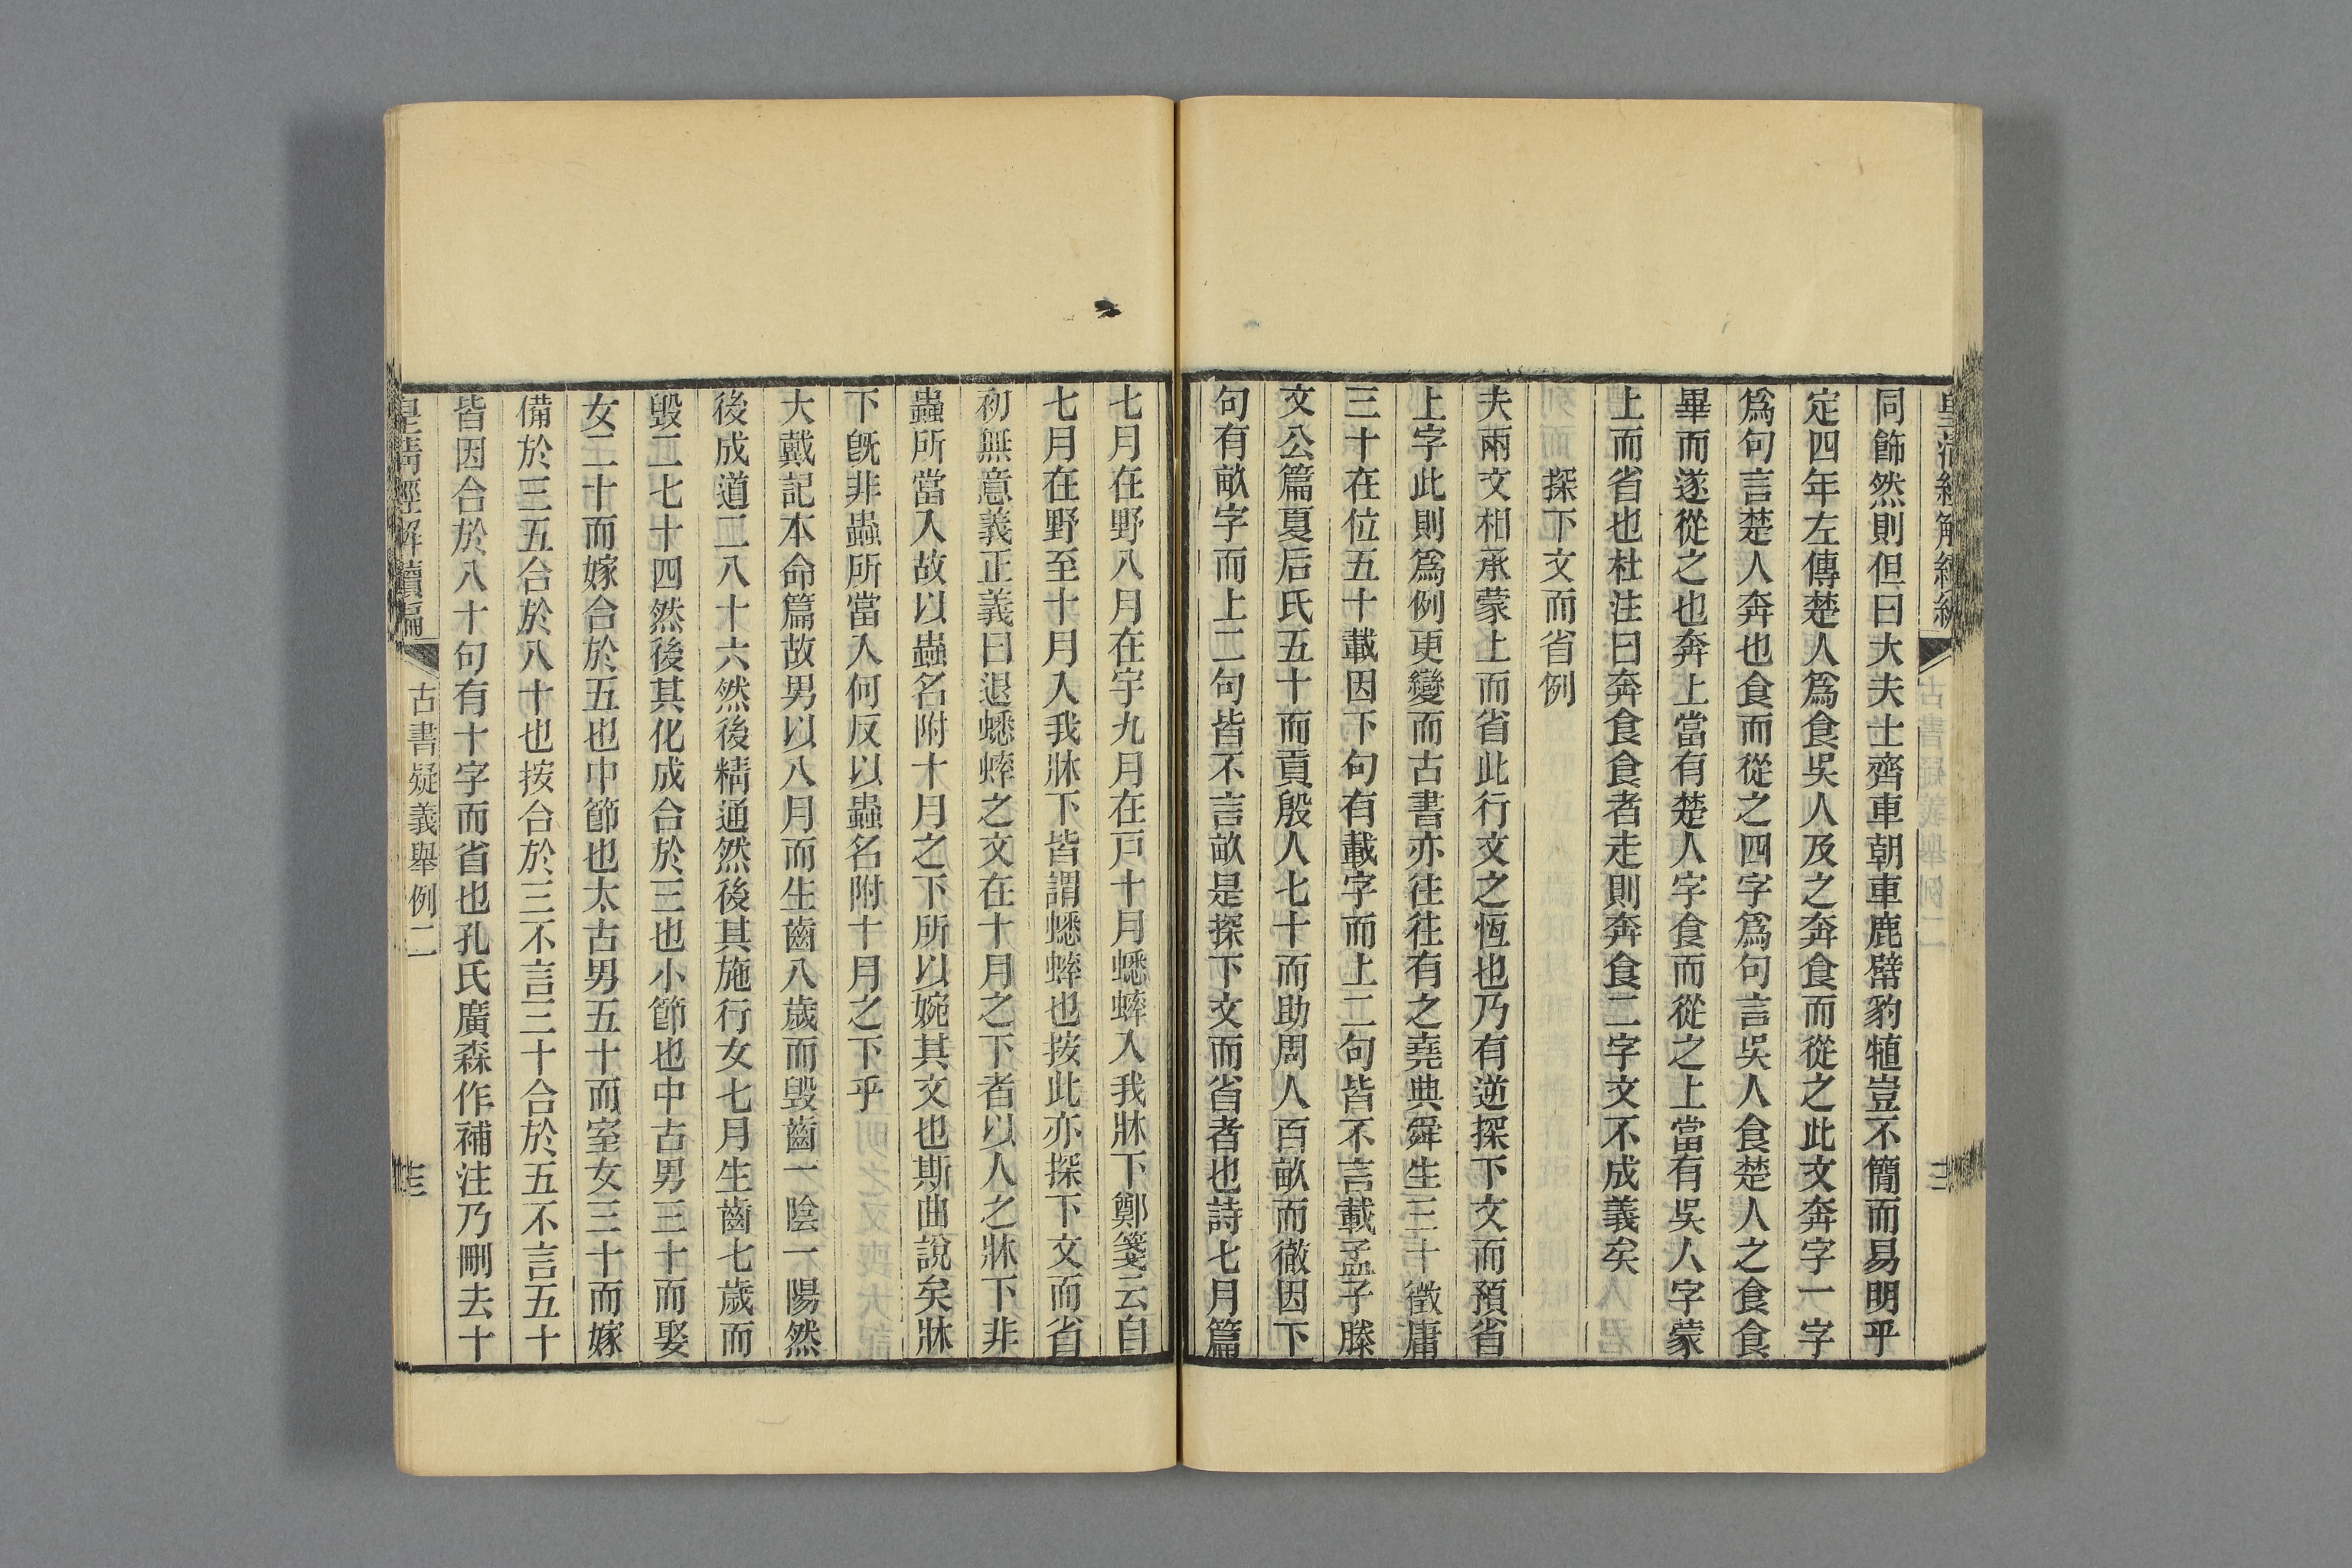 同飾然則但曰大夫士齊車朝車鹿幦豹犆豈不簡而易明乎
定四年左傳楚人爲食吳人及之奔食而從之此文奔字一字
爲句言楚人奔也食而從之四字爲句言吳人食楚人之食食
畢而遂從之也奔上當有楚人字食而從之上當有吳人字蒙
上而省也杜注曰奔食食者走則奔食二字文不成義矣
探下文而省例
夫兩文相承蒙上而省此行文之恆也乃有逆探下文而預省
上字此則爲例更變而古書亦往往有之堯典舜生三十徵庸
三十在位五十載因下句有載字而上二句皆不言載孟子滕
文公篇夏后氏五十而貢殷人七十而助周人百畝而徹因下
句有畝字而上二句皆不言畝是探下文而省者也詩七月篇
七月在野八月在宇九月在戸十月蟋蟀入我牀下鄭箋云自
七月在野至十月入我牀下皆謂蟋蟀也按此亦探下文而省
初無意義正義曰退蟋蟀之文在十月之下者以人之牀下非
蟲所當入故以蟲名附十月之下所以婉其文也斯曲說矣牀
下旣非蟲所當入何反以蟲名附十月之下乎
大戴記本命篇故男以八月而生齒八歲而毀齒一陰一陽然
後成道二八十六然後精通然後其施行女七月生齒七歲而
毀二七十四然後其化成合於三也小節也中古男三十而娶
女二十而嫁合於五也中節也太古男五十而室女三十而嫁
備於三五合於八十也按合於三不言三十合於五不言五十
皆因合於八十句有十字而省也孔氏廣森作補注乃刪去十
皇清經解續編
古書疑義舉例二